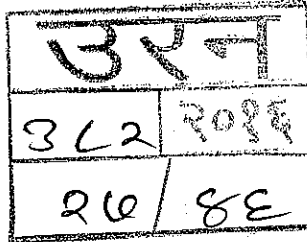 उरन
३८२ २०१६
२७/४६